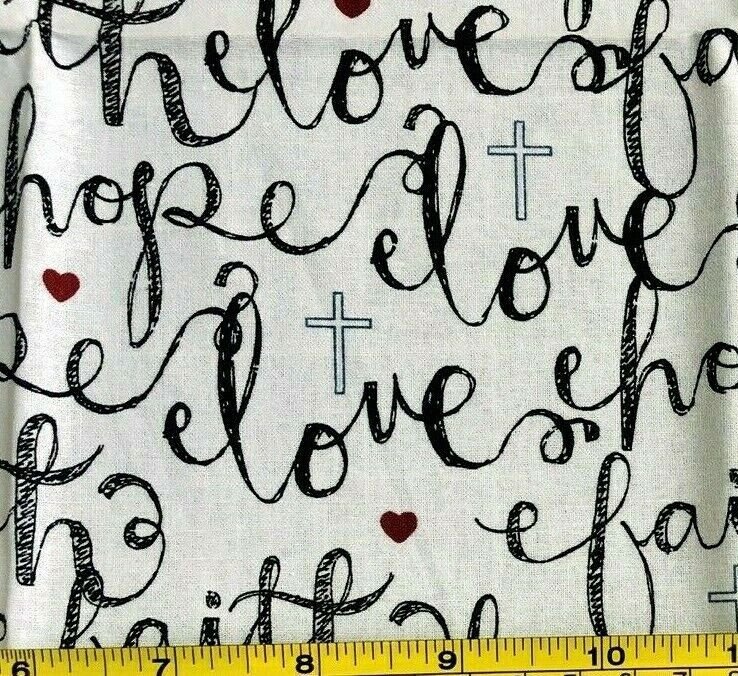 th love fa
hope love
e love ho
th fai
faith
6 7 8 9 10 1